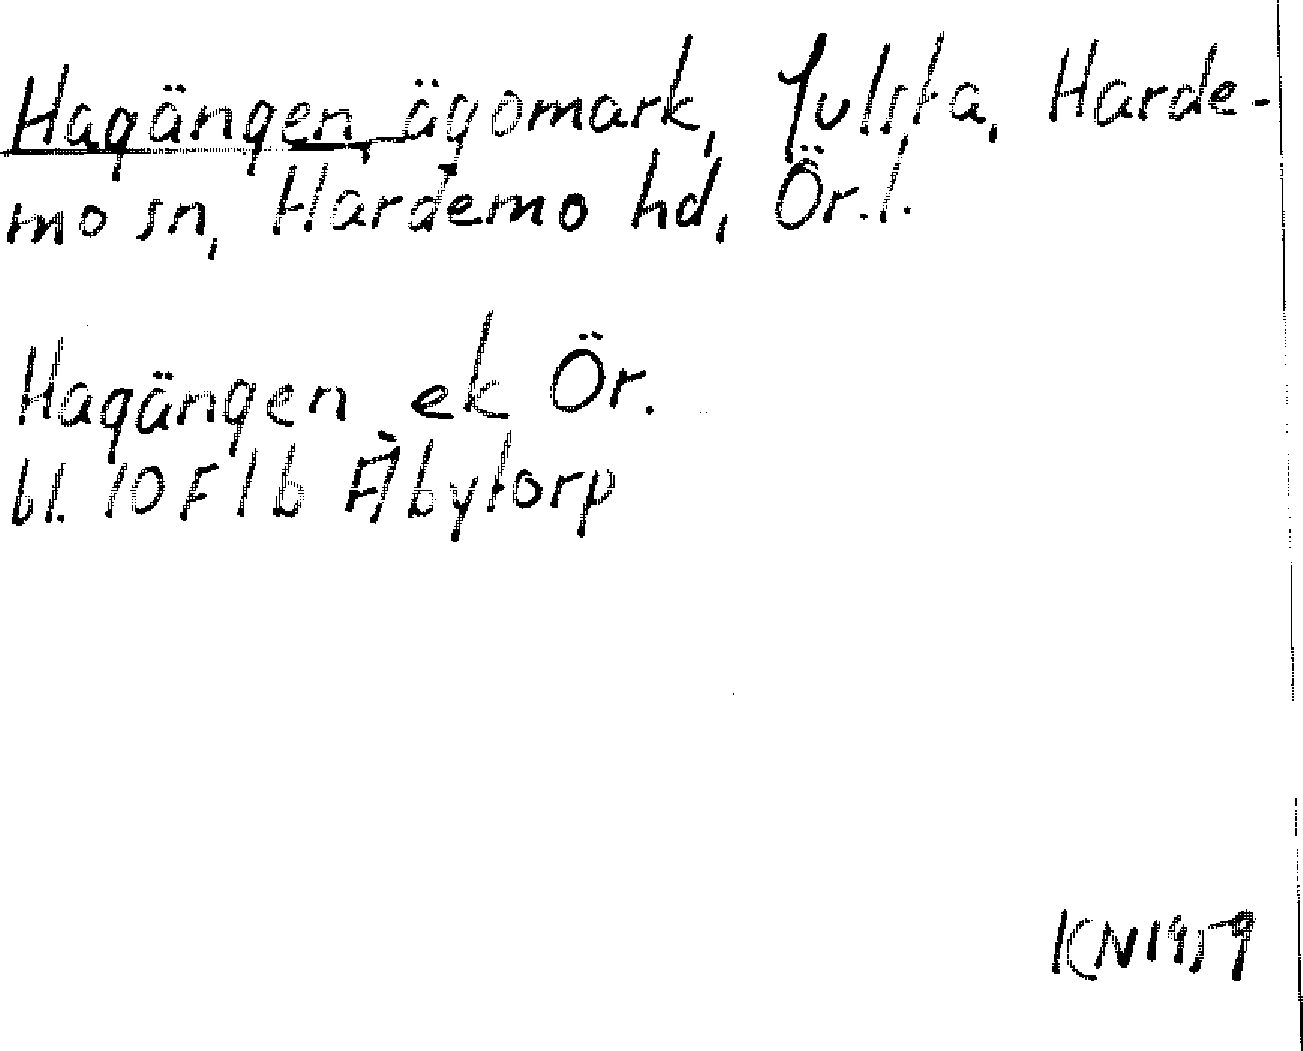 Hagängen, ägomark, Julsta, Harde-
mo sn, Hardemo hd, Ör.l.
Hagängen ek Ör.
bl. 10F1b Åbytorp
KN1959